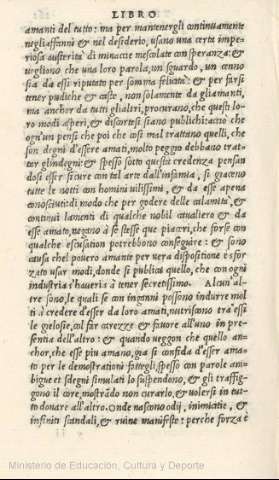 LIBRO
amanti del tutto: ma per mantenergli continuamente
negliaffanni & nel desiderio, usano una certa impe-
riosa austerità di minaccie mescolate con speranza: &
uogliono che una loro parola, un sguardo, un cenno
sia da essi riputato per somma felicità: & per farsi
tener pudiche & caste, non solamente da gliamanti,
ma anchor da tutti glialtri, procurano, che questi lo-
ro modi asperi, & discortesi siano publichi: acciò che
ogn'un pensi che poi che cosi mal trattano quelli, che
son degni d'essere amati, molto peggio debbano trat-
ter glindegni: & spesso sotto questa credenza pensan
dosi esser sicure con tal arte dall'infamia, si giaceno
tutte le notti con homini uilissimi, & da esse apena
conosciuti: di modo che per godere delle calamità, &
continui lamenti di qualche nobil caualiero & da
esse amato, negano à se stesse que piaceri, che forse con
qualche escusation potrebbono conseguire: & sono
causa chel pouero amante per uera disposition è sfor
zato usar modi, donde si publica quello, che con ogni
industria s'haueria à tener secretissimo. Alcun'al
tre sono, le quali se con inganni possono indurre mol
ti à credere d'esser da loro amati, nutriscono tra essi
le gielosie, col far carezze & fauore all'uno in pre-
sentia dell'altro: & quando ueggon che quello an-
chor, che esse piu amano, gia si confida d'esser ama-
to per le demostrationi fattegli, spesso con parole am-
bigue et sdegni simulati lo suspendono, & gli traffig-
gono il core, mostrãdo non curarlo, & uolersi in tut-
to donare all'altro. Onde nascono odij, inimicitie, &
infiniti scandali, & ruine manifeste: perche forza è
Ministerio de Educación, Cultura y Deporte